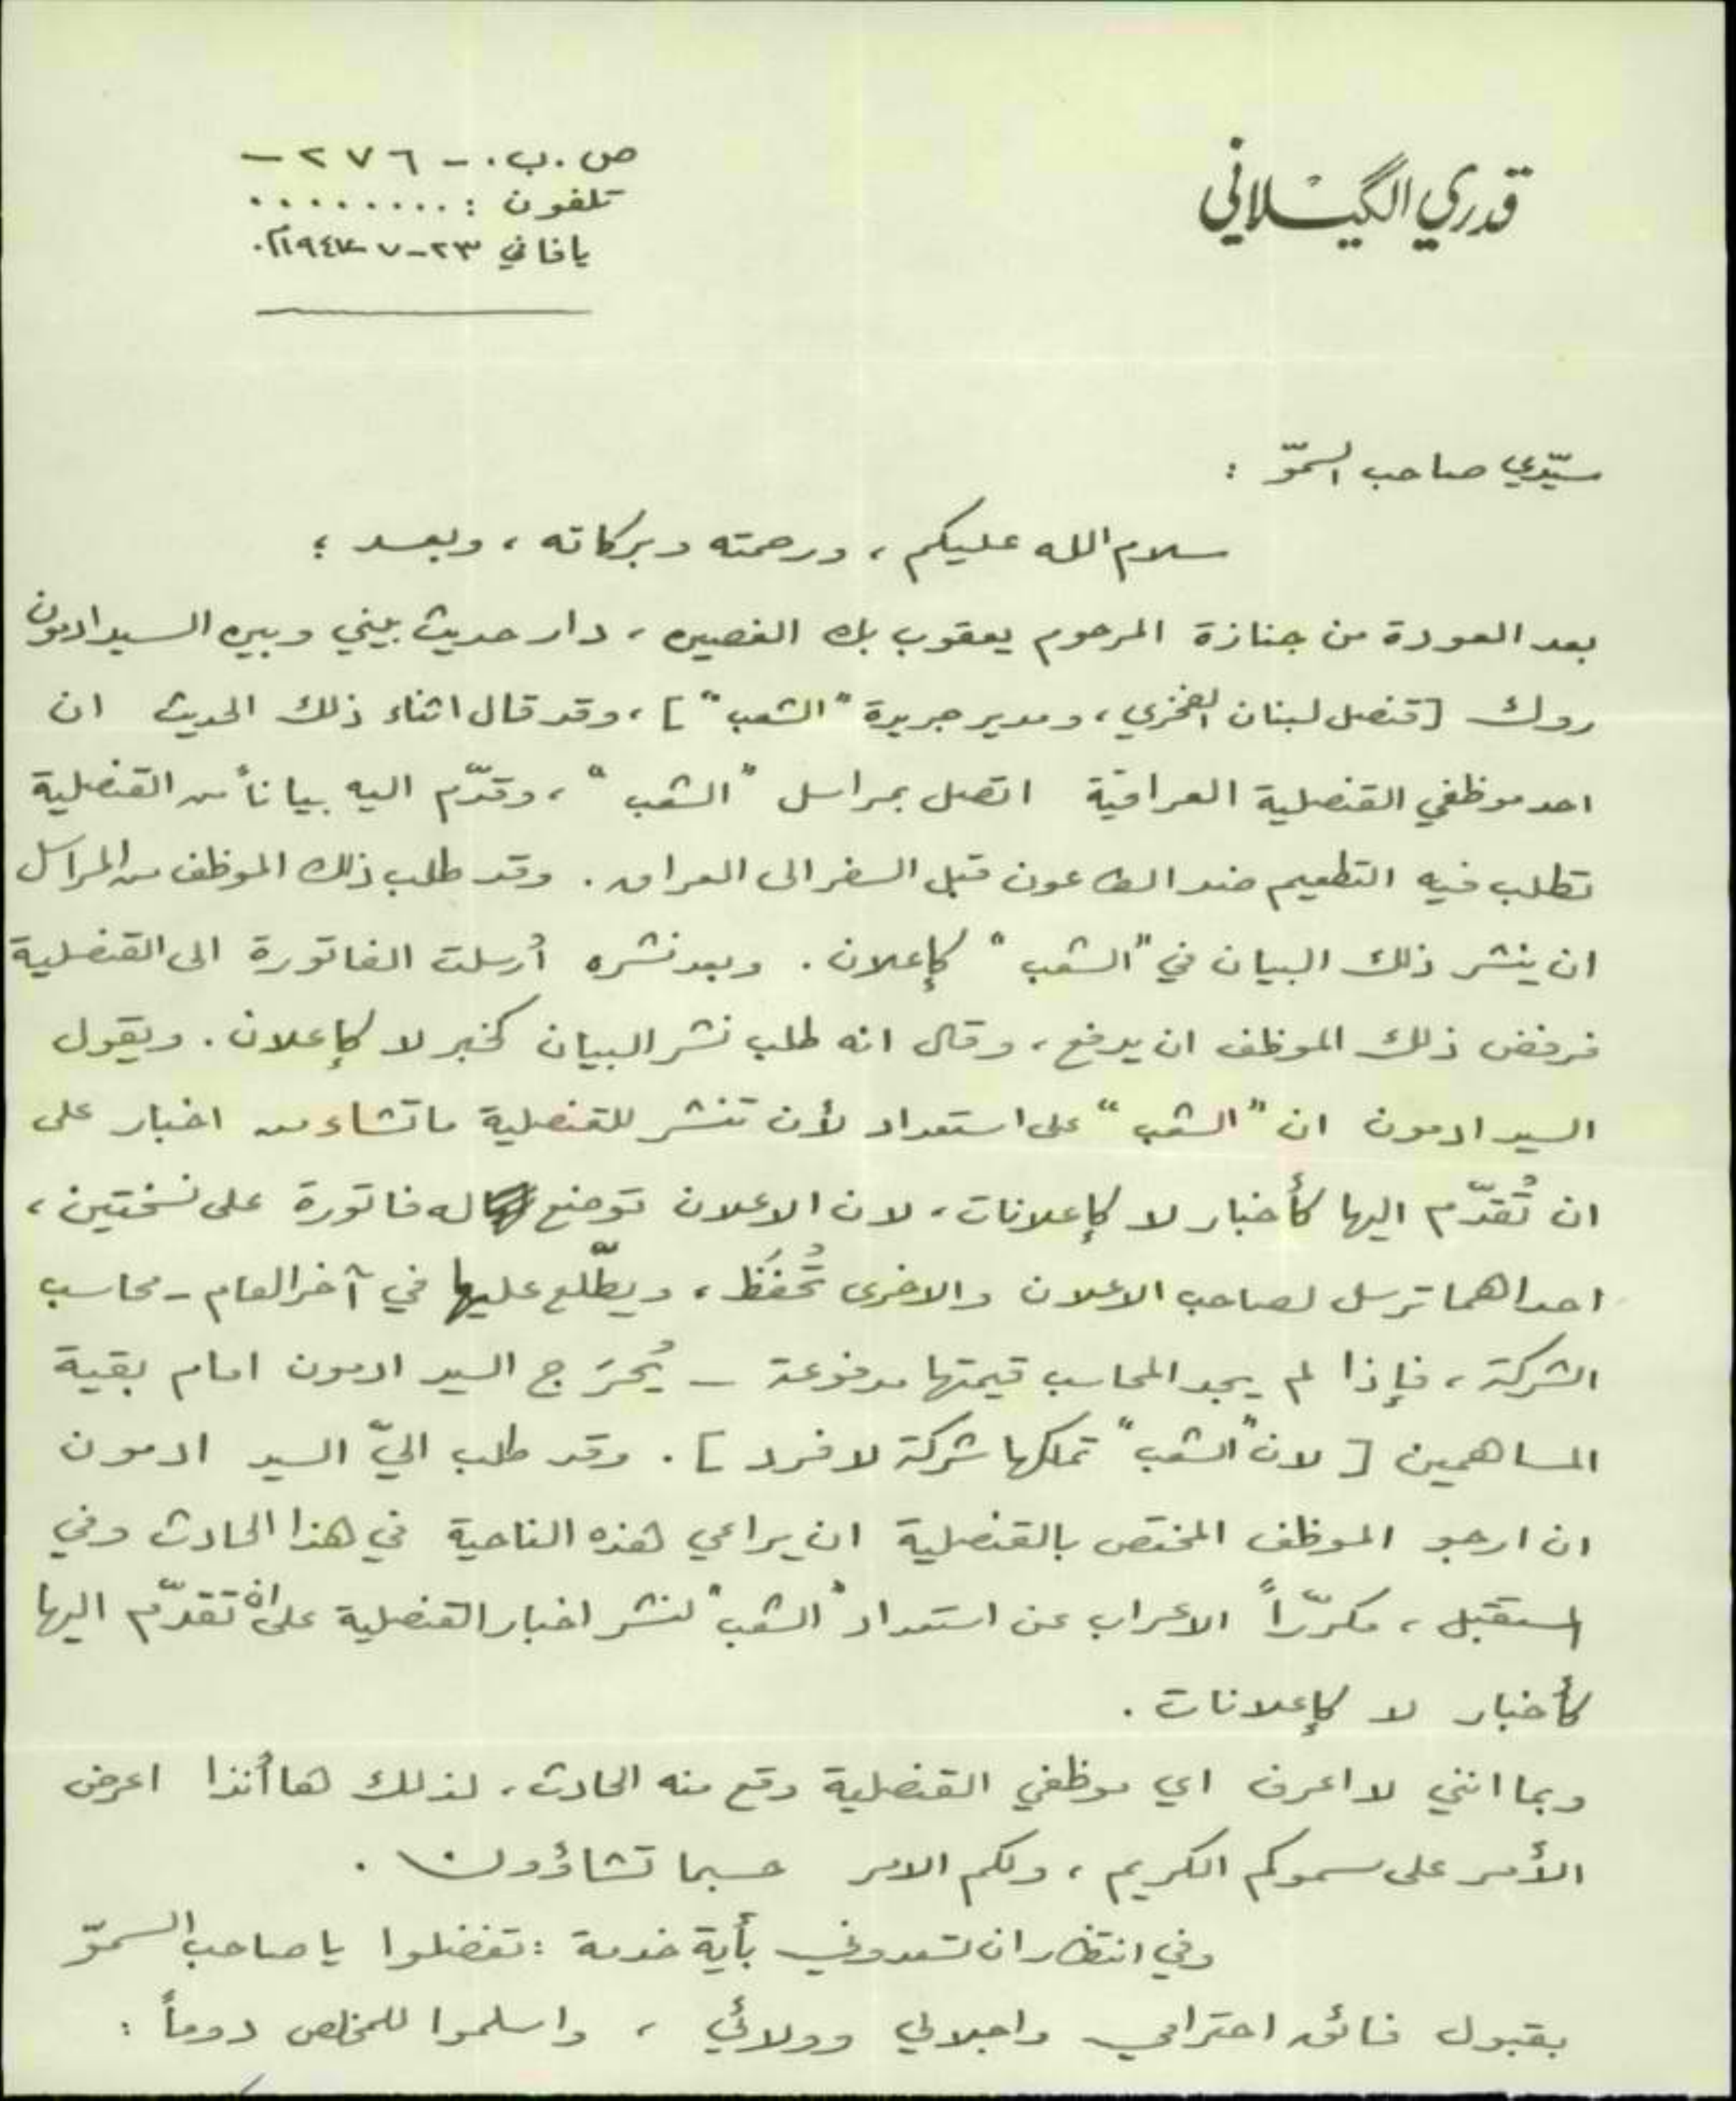 قدري الگيلاني
ص . ب . - ٢٧٦ -
تلفون : ..........
يافا في ٢٣-٧-١٩٤٧م.
سيّدي صاحب السموّ :
سلام الله عليكم ، ورحمته وبركاته ، وبعد ؛
بعد العودة من جنازة المرحوم يعقوب بك الغصين ، دار حديث بيني وبين السيد ادمون
روك [ قنصل لبنان الفخري ، ومدير جريدة "الشعب" ] ، وقد قال اثناء ذلك الحديث ان
احد موظفي القنصلية العراقية اتصل بمراسل "الشعب" ، وقدّم اليه بياناً من القنصلية
تطلب فيه التطعيم ضد الطاعون قبل السفر الى العراق . وقد طلب ذلك الموظف من المراسل
ان ينشر ذلك البيان في "الشعب" كإعلان . وبعد نشره أرسلت الفاتورة الى القنصلية
فرفض ذلك الموظف ان يدفع ، وقال انه طلب نشر البيان كخبر لا كإعلان . ويقول
السيد ادمون ان "الشعب" على استعداد لأن تنشر للقنصلية ما تشاء من اخبار على
ان تُقدّم اليها كأخبار لا كإعلانات ، لان الاعلان توضع له فاتورة على نسختين ،
احداهما ترسل لصاحب الاعلان والاخرى تُحفَظ ، ويطّلع عليها في آخر العام - محاسب
الشركة ، فإذا لم يجد المحاسب قيمتها مدفوعة - يُحرَج السيد ادمون امام بقية
المساهمين [ لان "الشعب" تملكها شركة لا فرد ] . وقد طلب اليّ السيد ادمون
ان ارجو الموظف المختص بالقنصلية ان يراعي هذه الناحية في هذا الحادث وفي
المستقبل ، مكرّراً الاعراب عن استعداد "الشعب" لنشر اخبار القنصلية على ان تقدّم اليها
كأخبار لا كإعلانات .
وبما انني لا اعرف اي موظفي القنصلية وقع منه الحادث ، لذلك هاأنذا اعرض
الأمر على سموكم الكريم ، ولكم الامر حسبما تشاؤون .
وفي انتظار ان تسعدوني بأية خدمة : تفضلوا يا صاحب السموّ
بقبول فائق احترامي واجلالي وولائي ، واسلموا للمخلص دوماً :